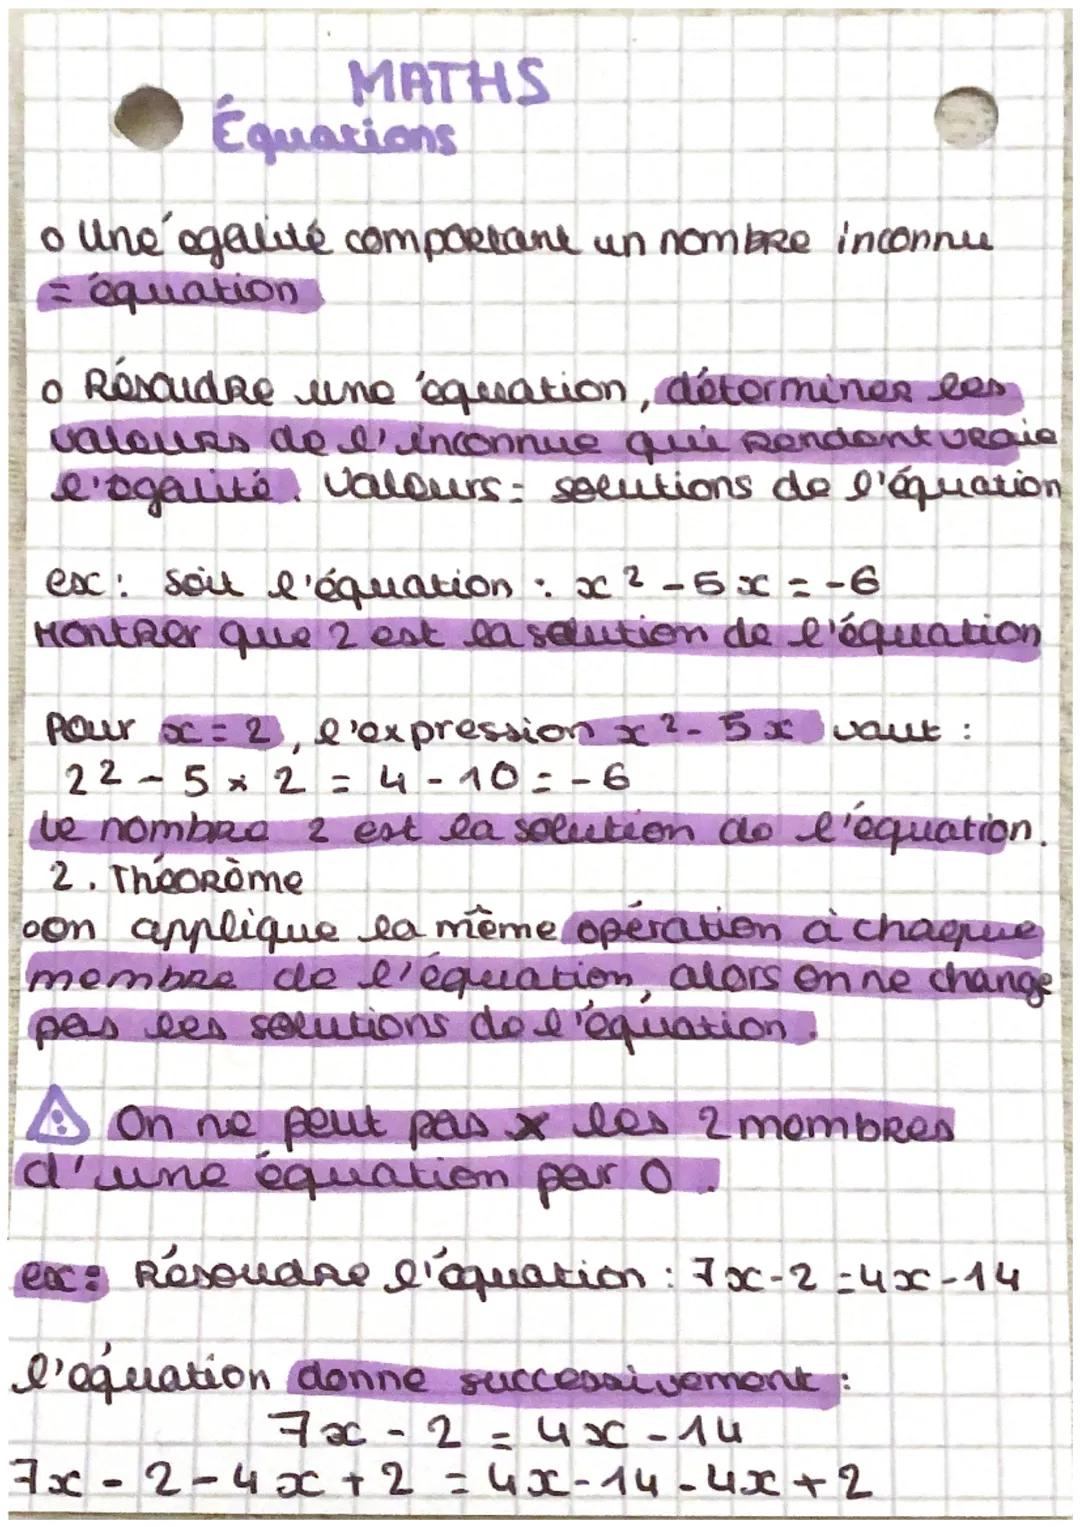 MATHS
Équations
o Une égalité comportant un nombre inconnu
= équation
o Résoudre une équation, déterminer les
valeurs de l'inconnue qui rendent vraie
l'égalité. Valeurs = solutions de l'équation
ex : soit l'équation : x² - 5x = -6
Montrer que 2 est la solution de l'équation
Pour x = 2, l'expression x² - 5x vaut :
2² - 5 × 2 = 4 - 10 = -6
Le nombre 2 est la solution de l'équation.
2. Théorème
o on applique la même opération à chaque
membre de l'équation, alors on ne change
pas les solutions de l'équation.
⚠ On ne peut pas × les 2 membres
d'une équation par 0.
ex : Résoudre l'équation : 7x - 2 = 4x - 14
l'équation donne successivement :
7x - 2 = 4x - 14
7x - 2 - 4x + 2 = 4x - 14 - 4x + 2